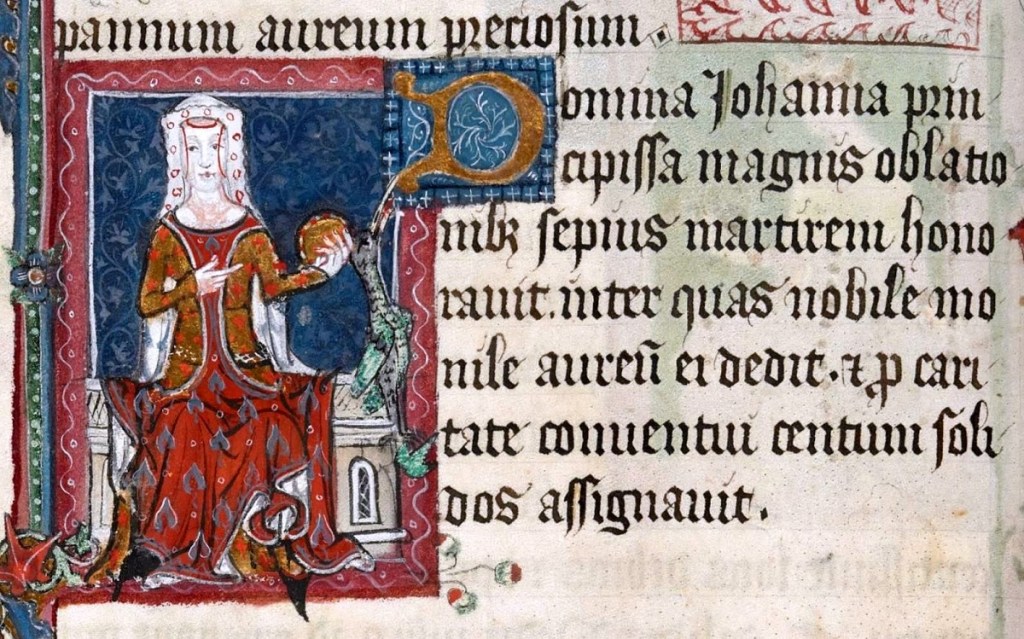 pannum aureum preciosum
Domina Johanna prin
cipissa magnis oblatio
nibꝫ sepius martirem hono
rauit. inter quas nobile mo
nile aureū ei dedit. ⁊ ꝑ cari
tate conuentui centum soli
dos assignauit.